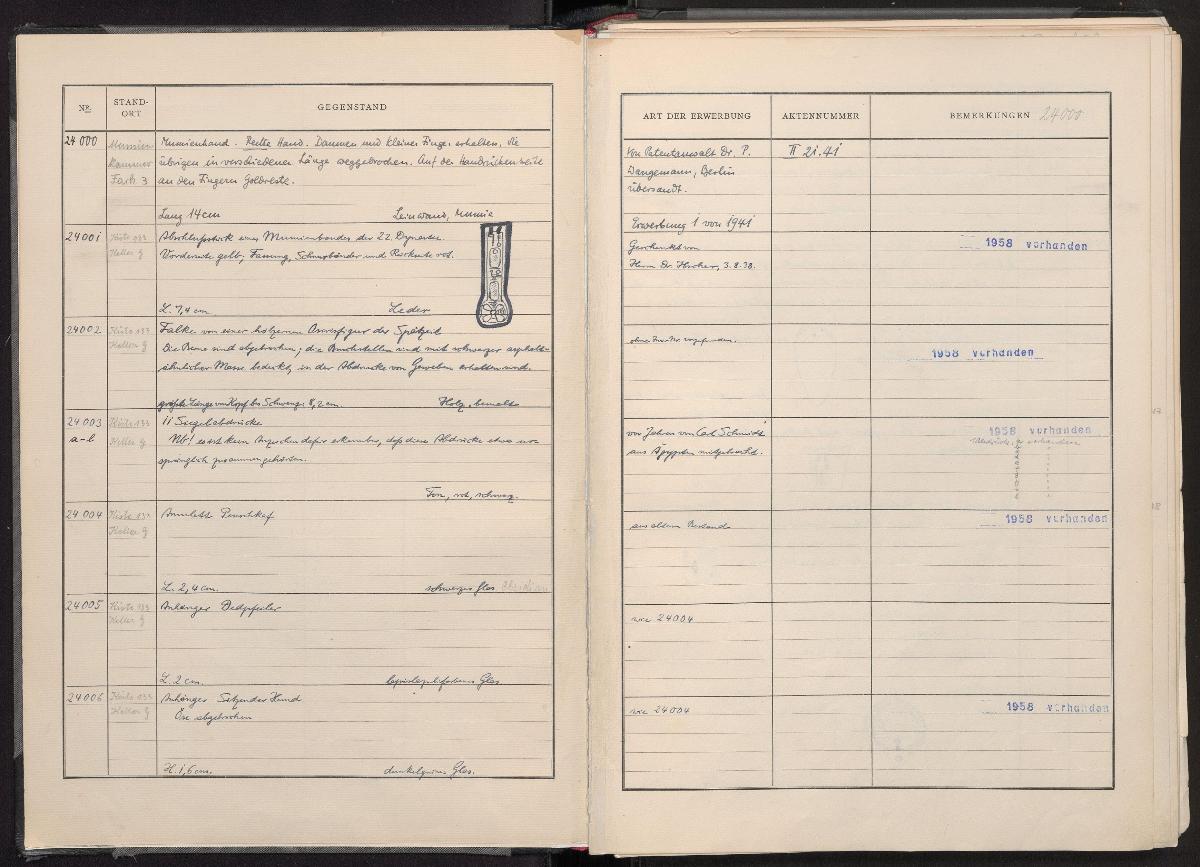 NR.
STAND-
ORT
GEGENSTAND
24000
Mumien
Kammer
Fach 3
Mumienhand. Rechte Hand. Daumen und kleiner Finger erhalten, die
übrigen in verschiedener Länge weggebrochen. Auf der Handrückenseite
an den Fingern Goldreste.
Lang 14 cm
Leinwand, Mumie
24001
Kiste 133
Keller G
Abschlußstück eines Mumienbandes der 22. Dynastie.
Vorderseite gelb, Fassung, Schnurbänder und Rückseite rot.
L. 7,4 cm
Leder
24002
Kiste 133
Keller G
Falke von einer hölzernen Osirisfigur der Spätzeit
Die Beine sind abgebrochen; die Bruchstellen sind mit schwarzer asphalt-
ähnlicher Masse bedeckt, in der Abdrücke von Geweben erhalten sind.
größte Länge von Kopf bis Schwanz: 8,2 cm.
Holz, bemalt
24003
a-l
Kiste 133
Keller G
11 Siegelabdrücke
Nb! es ist kein Anzeichen dafür erkennbar, daß diese Abdrücke etwa ur-
sprünglich zusammengehörten.
Ton, rot, schwarz.
24004
Kiste 133
Keller G
Amulett
L. 2,4 cm.
schwarzes Glas Obsidian
24005
Kiste 133
Keller G
Anhänger Dedpfeiler
L. 2 cm.
lapislazulifarbenes Glas.
24006
Kiste 133
Keller G
Anhänger Sitzender Hund
Öse abgebrochen
H. 1,6 cm.
dunkelgrünes Glas.
ART DER ERWERBUNG
AKTENNUMMER
BEMERKUNGEN
24000
Von Patentanwalt Dr. P.
Wangemann, Berlin
übersandt.
II 21.41
Erwerbung 1 von 1941
Geschenkt von
Herrn Dr. 3.8.38.
1958 vorhanden
ohne vorgefunden.
1958 vorhanden
vor Jahren von Carl Schmidt
aus Ägypten mitgebracht.
1958 vorhanden
vorhanden
aus altem Bestande
1958 vorhanden
wie 24004
wie 24004
1958 vorhanden